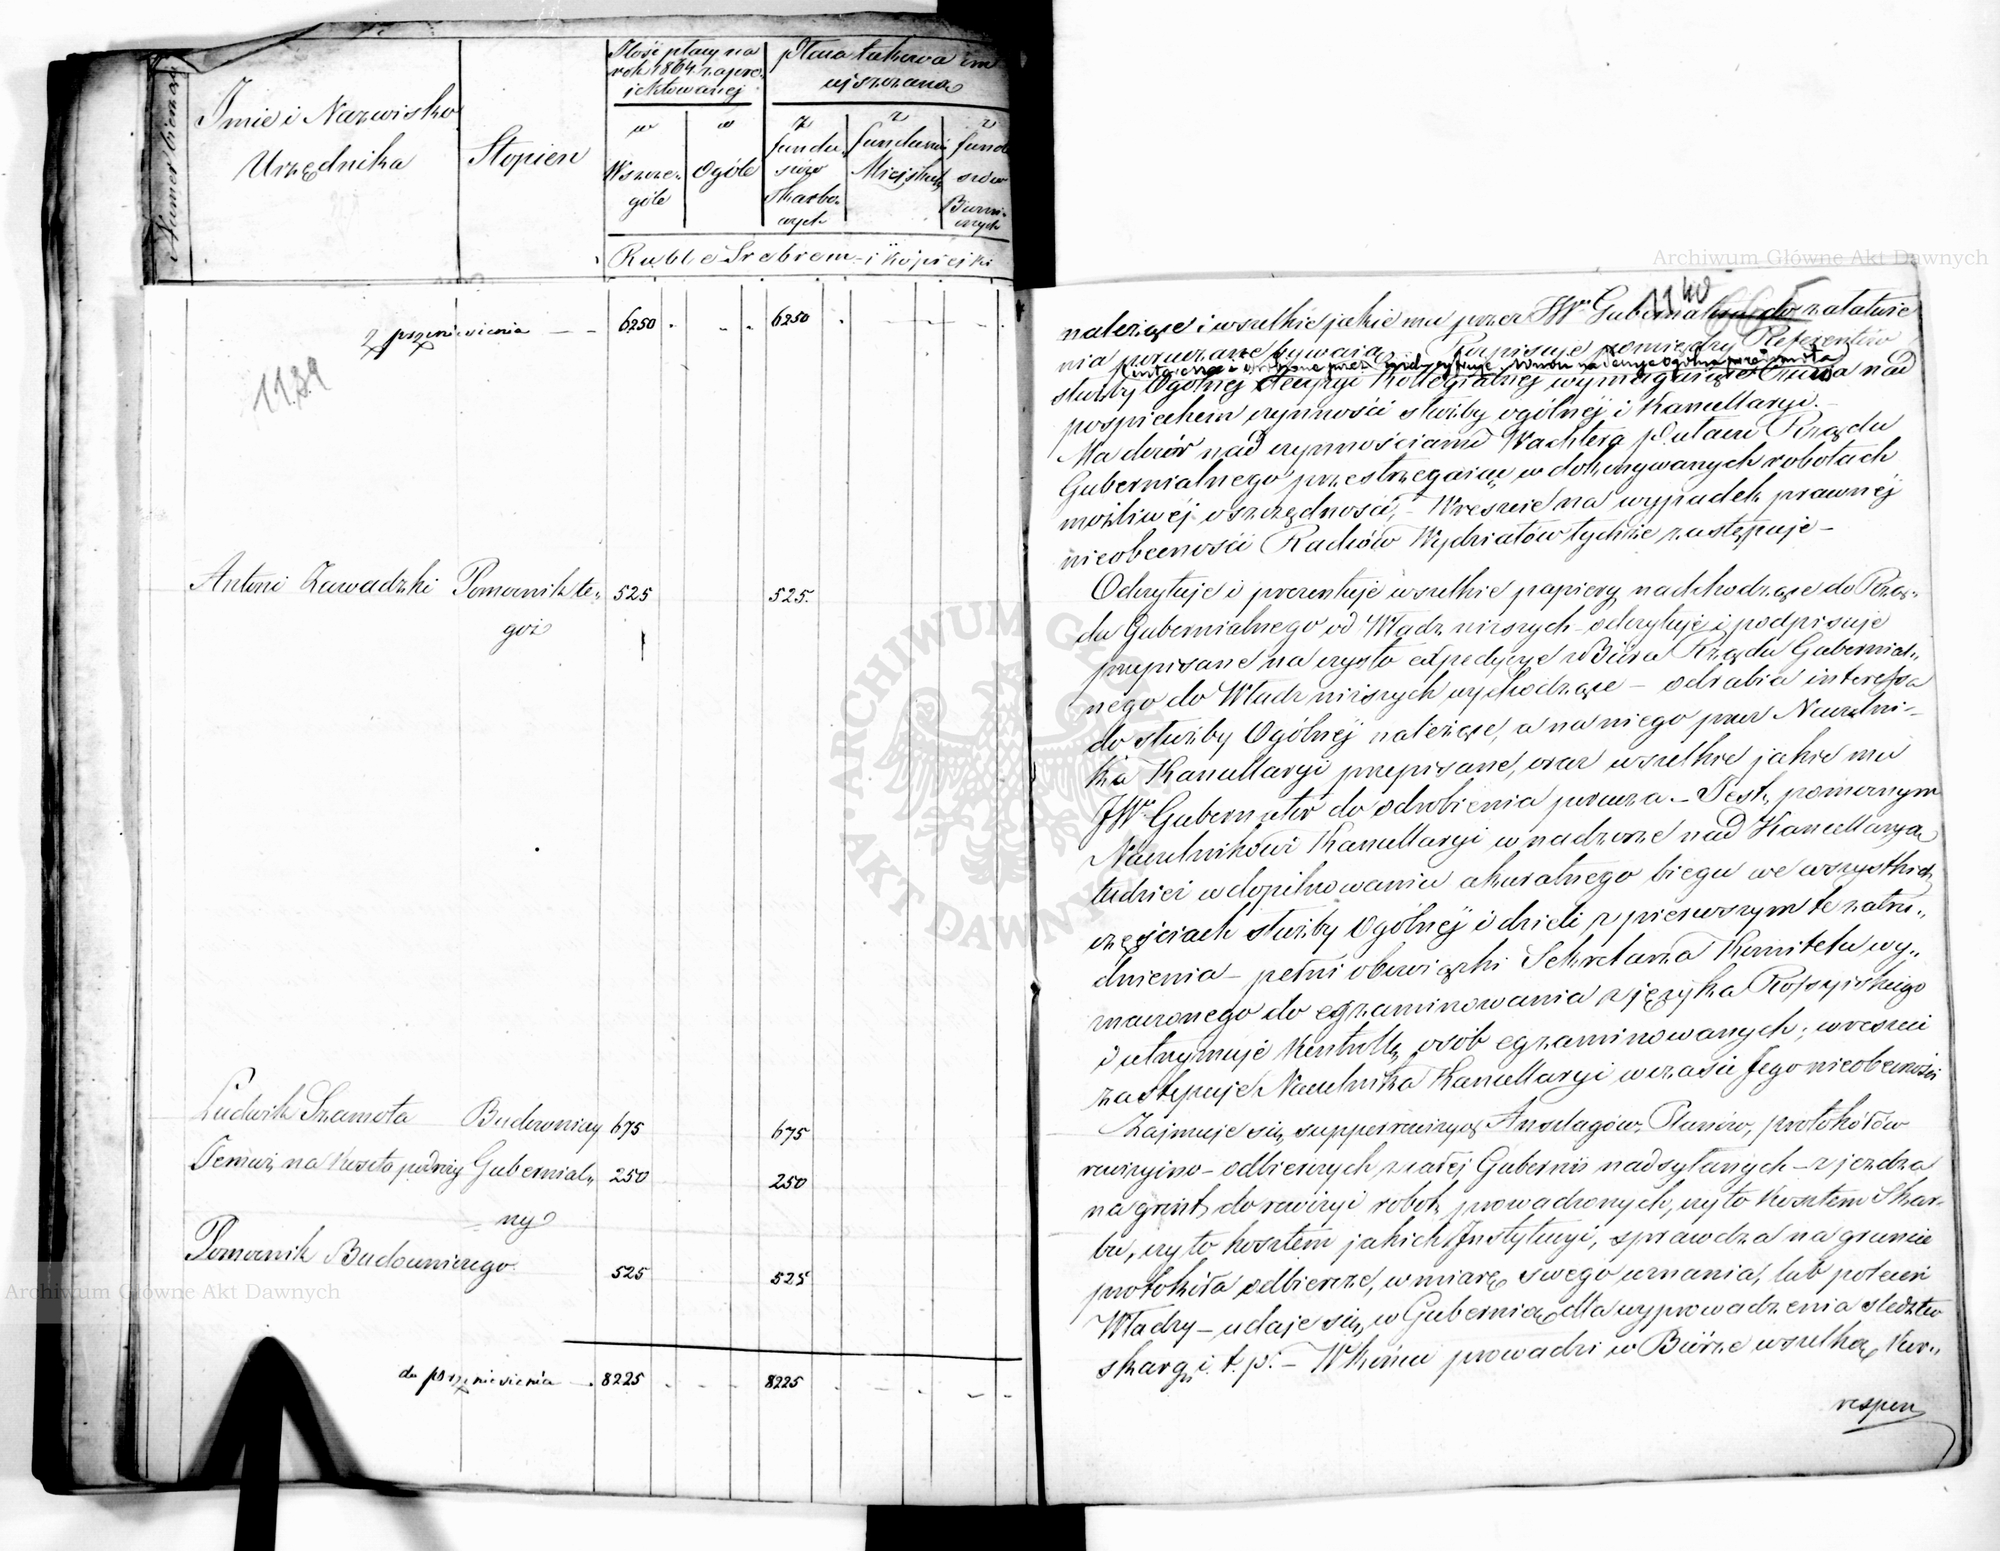 Numer bieżący
Imie i Nazwisko
Urzędnika
Stopien
Ilość płacy na
rok 1864 zapro-
jektowanej
w
Wszcze-
góle
w
Ogóle
Płaca takowa
z
fundu-
szów
Skarbo-
wych
z
funduszów
Miejskich
z
fundu-
szów
Ruble Srebrem i kopiejki
z przeniesienia — — 6250 . . . 6250
1139
Antoni Zawadzki Pomocnik te- 525 525.
goż
Ludwik Szamota Budowniczy 675 675
Temuż na koszta podróży Gubernial- 250 250
ny
Pomocnik Budowniczego 525 525
do przeniesienia — 8225 8225
1140
należące i wszelkie jakie mu przez JWo Gubernatora do załatwie
nia poruczane bywają. Rozpisuje pomiędzy Referentów
służby Ogólnej decyzyi Kollegialnej wymagające Czuwa nad
pospiechem czynności służby ogólnej i Kancellaryi. —
Ma dozór nad czynnościami Wachtera pałacu Rządu
Gubernialnego przestrzegając w dokonywanych robotach
możliwej oszczędności, — Wreszcie na wypadek prawnej
nieobecności Radców Wydziałów tychże zastępuje —
Odczytuje i prezentuje wszelkie papiery nadchodzące do Rzą-
du Gubernialnego od Władz niższych — odczytuje i podpisuje
przepisane na czysto expedycye z Biura Rządu Gubernial-
nego do Władz niższych wychodzące — odrabia interessa
do służby Ogólnej należące, a na niego przez Naczelni-
ka Kancellaryi przepisane, oraz wszelkie jakie mu
JWo Gubernator do odrobienia porucza. — Jest pomocnym
Naczelnikowi Kancellaryi w nadzorze nad Kancellaryą
tudzież w dopilnowaniu akuratnego biegu we wszystkich
częściach służby Ogólnej i dzieli z pierwszym te zatru-
dnienia — pełni obowiązki Sekretarza Komitetu wy-
znaczonego do egzaminowania z języka Rossyjskiego
i utrzymuje kontrollę osób egzaminowanych; wreszcie
zastępuje Naczelnika Kancellaryi w czasie Jego nieobecności
Zajmuje się superrewizyą Anszlagów, Planów, protokółów
rewizyino — odbiorczych z całej Gubernii nadsyłanych — zjeżdza
na grunt do rewizyi robot prowadzonych, czy to kosztem Skar-
bu, czy to kosztem jakich Instytucyi, sprawdza na gruncie
protokóła odbiorcze, w miarę swego uznania, lub poleceń
Władzy — udaje się w Gubernią dla wyprowadzenia śledztw
skarg i. t. p. — W końcu prowadzi w Biórze wszelką kor-
respon
Archiwum Główne Akt Dawnych
ARCHIWUM GŁÓWNE AKT DAWNYCH
Archiwum Główne Akt Dawnych